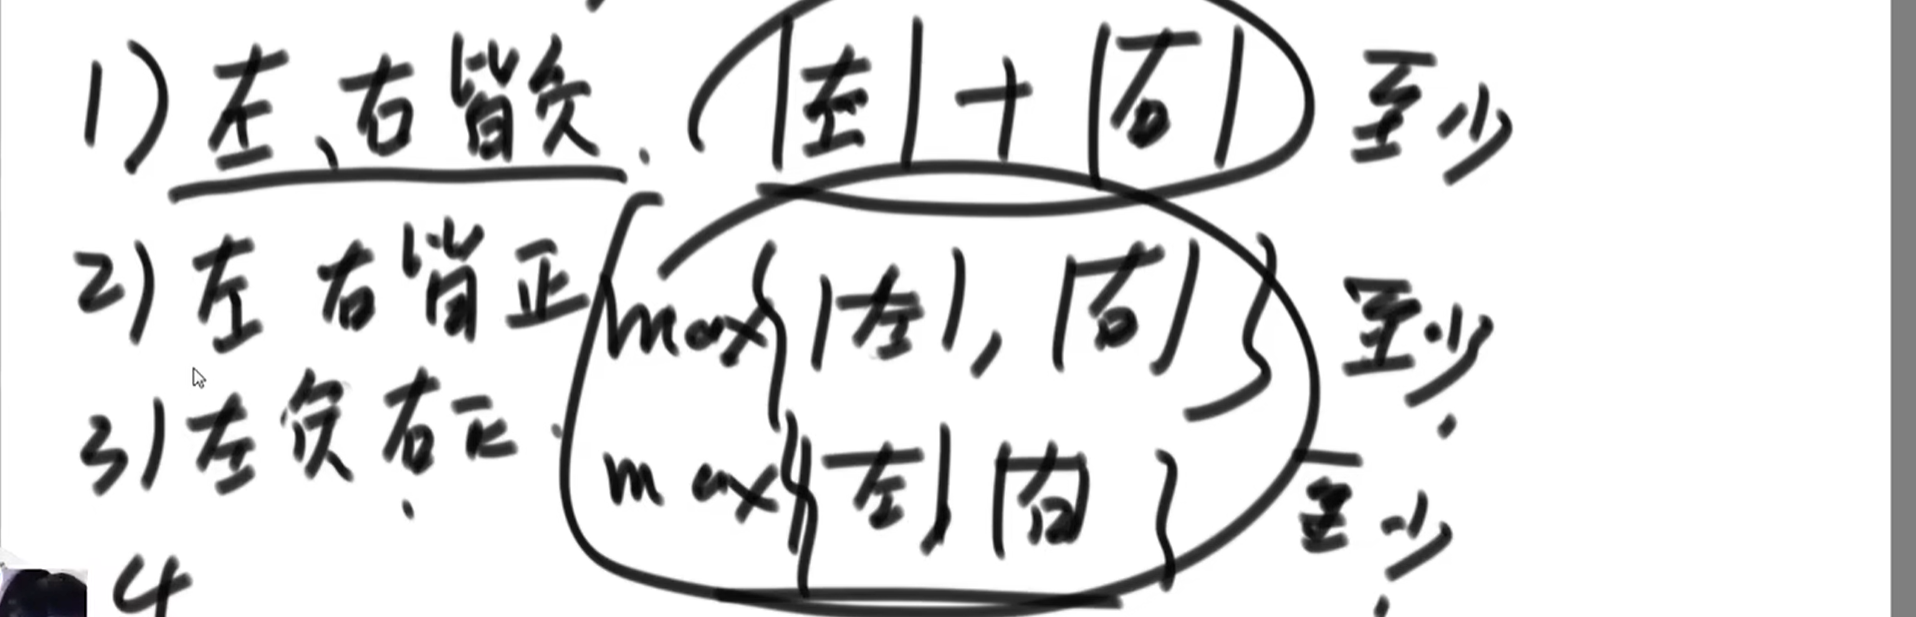 1) 左、右皆负. |左|+|右| 至少
2) 左 右皆正 max{|左|,|右|} 至少.
3) 左负右正. max{|左| |右|} 至少.
4